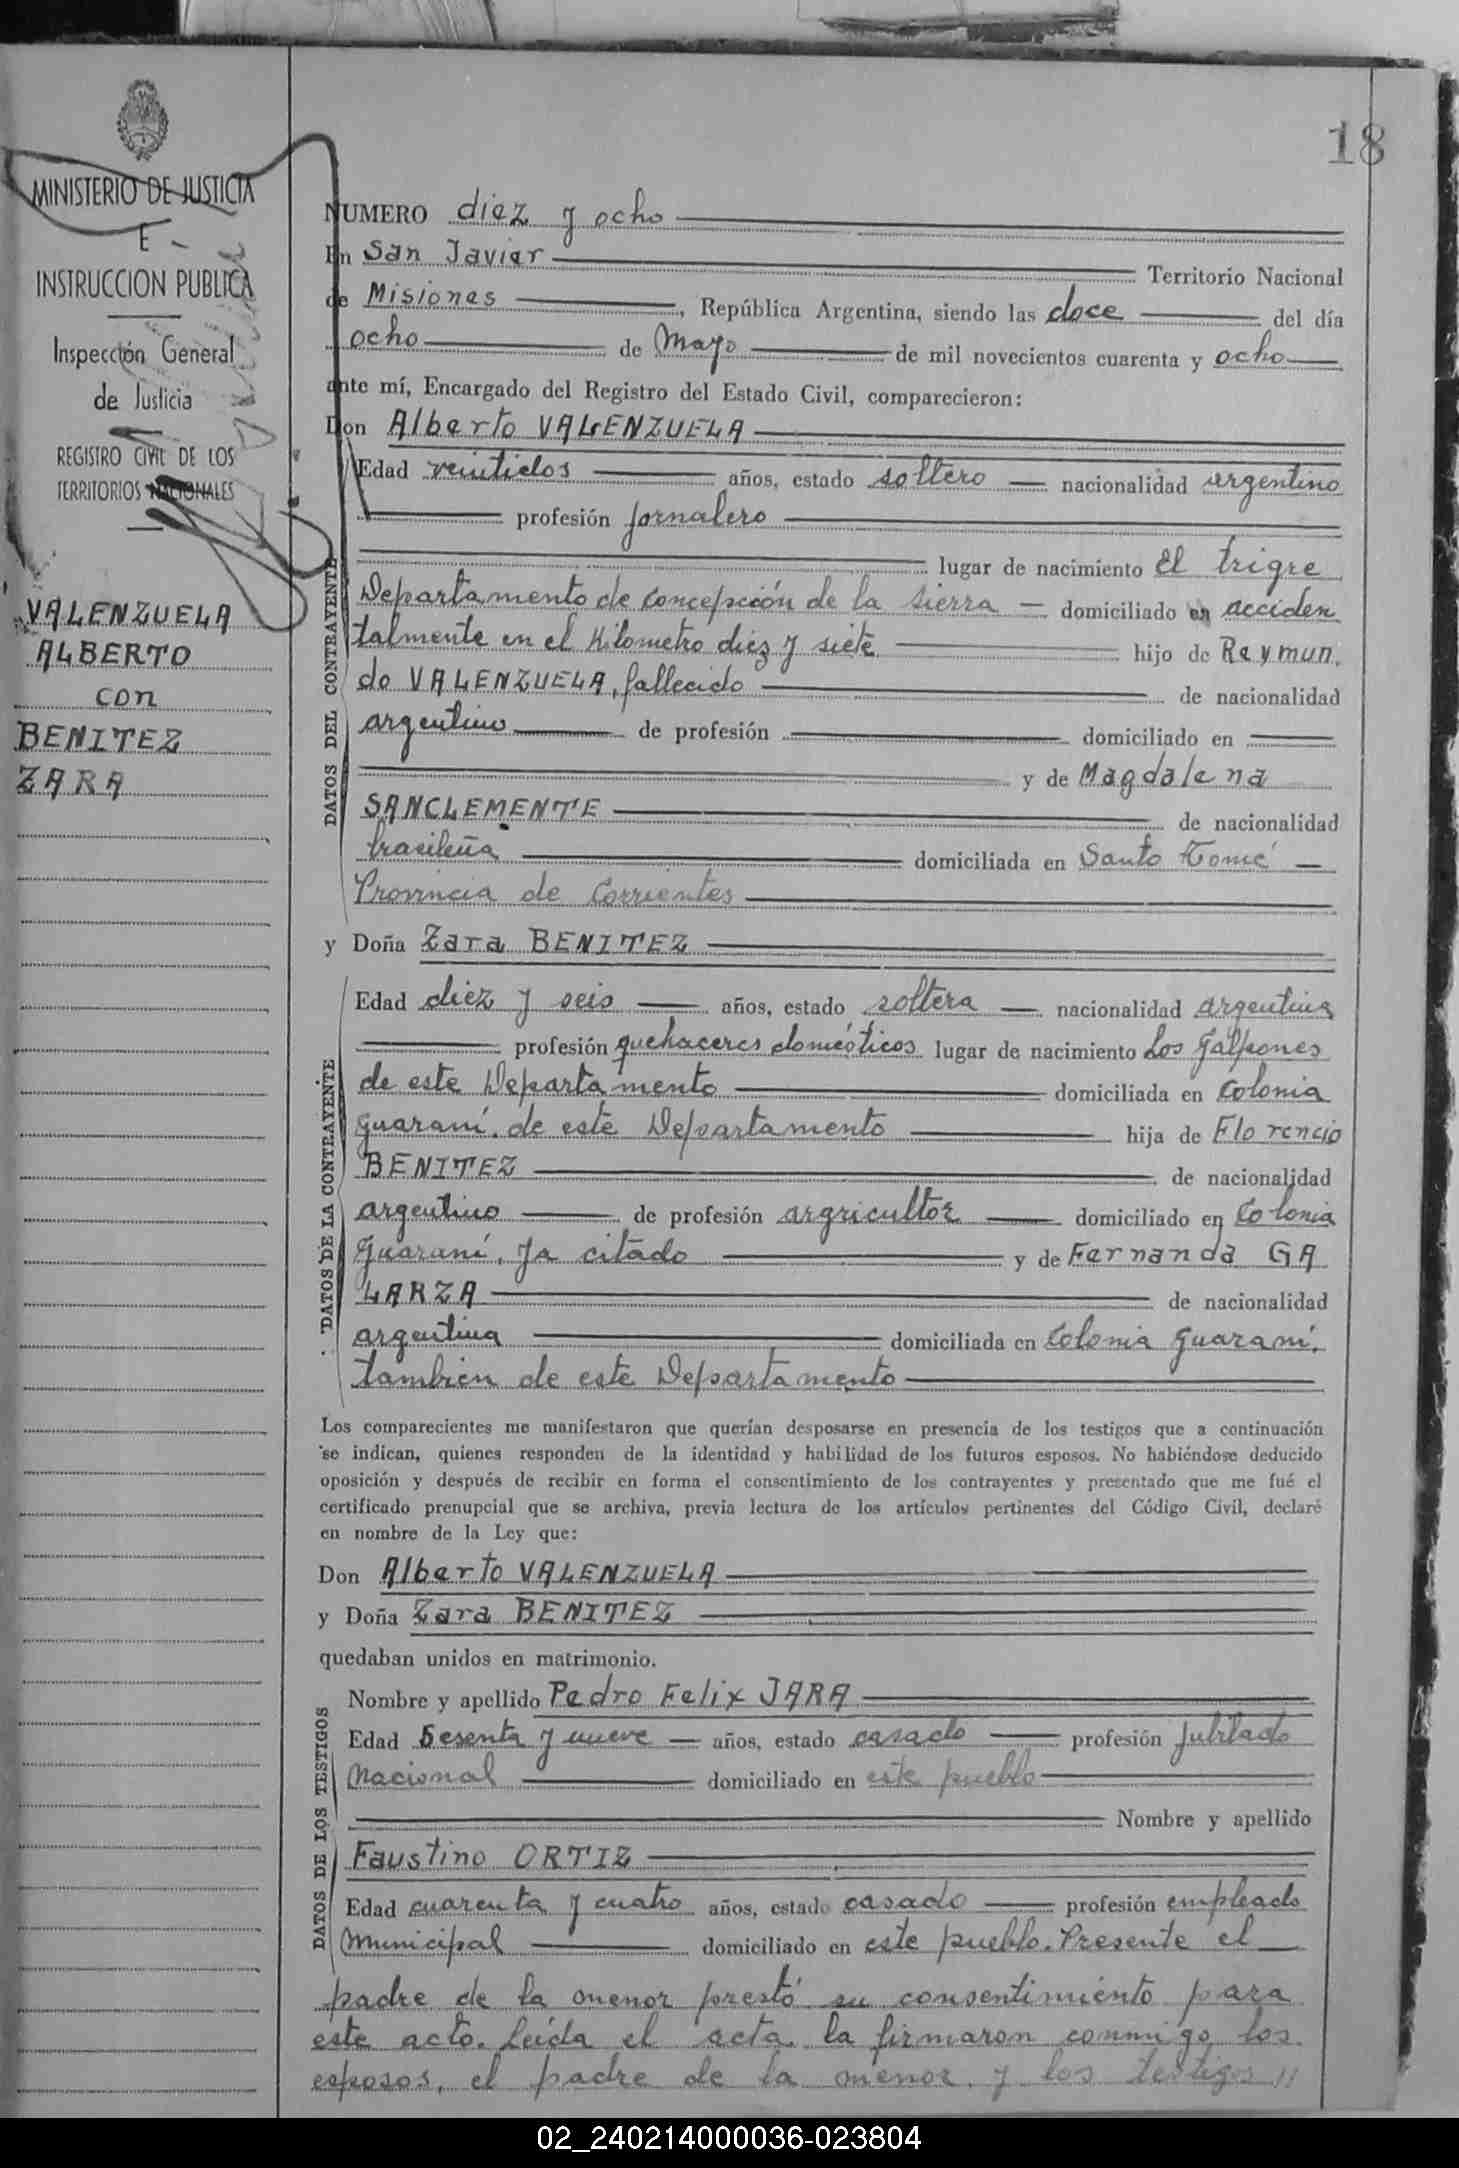 18
MINISTERIO DE JUSTICIA
E
INSTRUCCION PUBLICA
Inspección General
de Justicia
REGISTRO CIVIL DE LOS
TERRITORIOS NACIONALES
VALENZUELA
ALBERTO
con
BENITEZ
ZARA
NUMERO diez y ocho
En San Javier Territorio Nacional
de Misiones, República Argentina, siendo las doce del día
ocho de Mayo de mil novecientos cuarenta y ocho
ante mí, Encargado del Registro del Estado Civil, comparecieron:
Don Alberto VALENZUELA
DATOS DEL CONTRAYENTE
Edad veintidos años, estado soltero nacionalidad argentino
profesión jornalero
lugar de nacimiento El trigre
Departamento de Concepción de la Sierra domiciliado en acciden
talmente en el Kilometro diez y siete hijo de Raymun.
do VALENZUELA, fallecido de nacionalidad
argentino de profesión domiciliado en
y de Magdalena
SANCLEMENTE de nacionalidad
brasileña domiciliada en Santo Tomé
Provincia de Corrientes
y Doña Zara BENITEZ
DATOS DE LA CONTRAYENTE
Edad diez y seis años, estado soltera nacionalidad argentina
profesión quehaceres domésticos lugar de nacimiento Los Galpones
de este Departamento domiciliada en Colonia
Guaraní, de este Departamento hija de Florencio
BENITEZ de nacionalidad
argentino de profesión argricultor domiciliado en Colonia
Guaraní, ya citado y de Fernanda GA
LARZA de nacionalidad
argentina domiciliada en Colonia Guaraní,
tambien de este Departamento
Los comparecientes me manifestaron que querían desposarse en presencia de los testigos que a continuación
se indican, quienes responden de la identidad y habilidad de los futuros esposos. No habiéndose deducido
oposición y después de recibir en forma el consentimiento de los contrayentes y presentado que me fué el
certificado prenupcial que se archiva, previa lectura de los artículos pertinentes del Código Civil, declaré
en nombre de la Ley que:
Don Alberto VALENZUELA
y Doña Zara BENITEZ
quedaban unidos en matrimonio.
DATOS DE LOS TESTIGOS
Nombre y apellido Pedro Felix JARA
Edad Sesenta y nueve años, estado casado profesión Jubilado
Nacional domiciliado en este pueblo
Nombre y apellido
Faustino ORTIZ
Edad cuarenta y cuatro años, estado casado profesión empleado
Municipal domiciliado en este pueblo. Presente el
padre de la menor prestó su consentimiento para
este acto. Leída el acta, la firmaron conmigo los
esposos, el padre de la menor y los testigos //
02_240214000036-023804